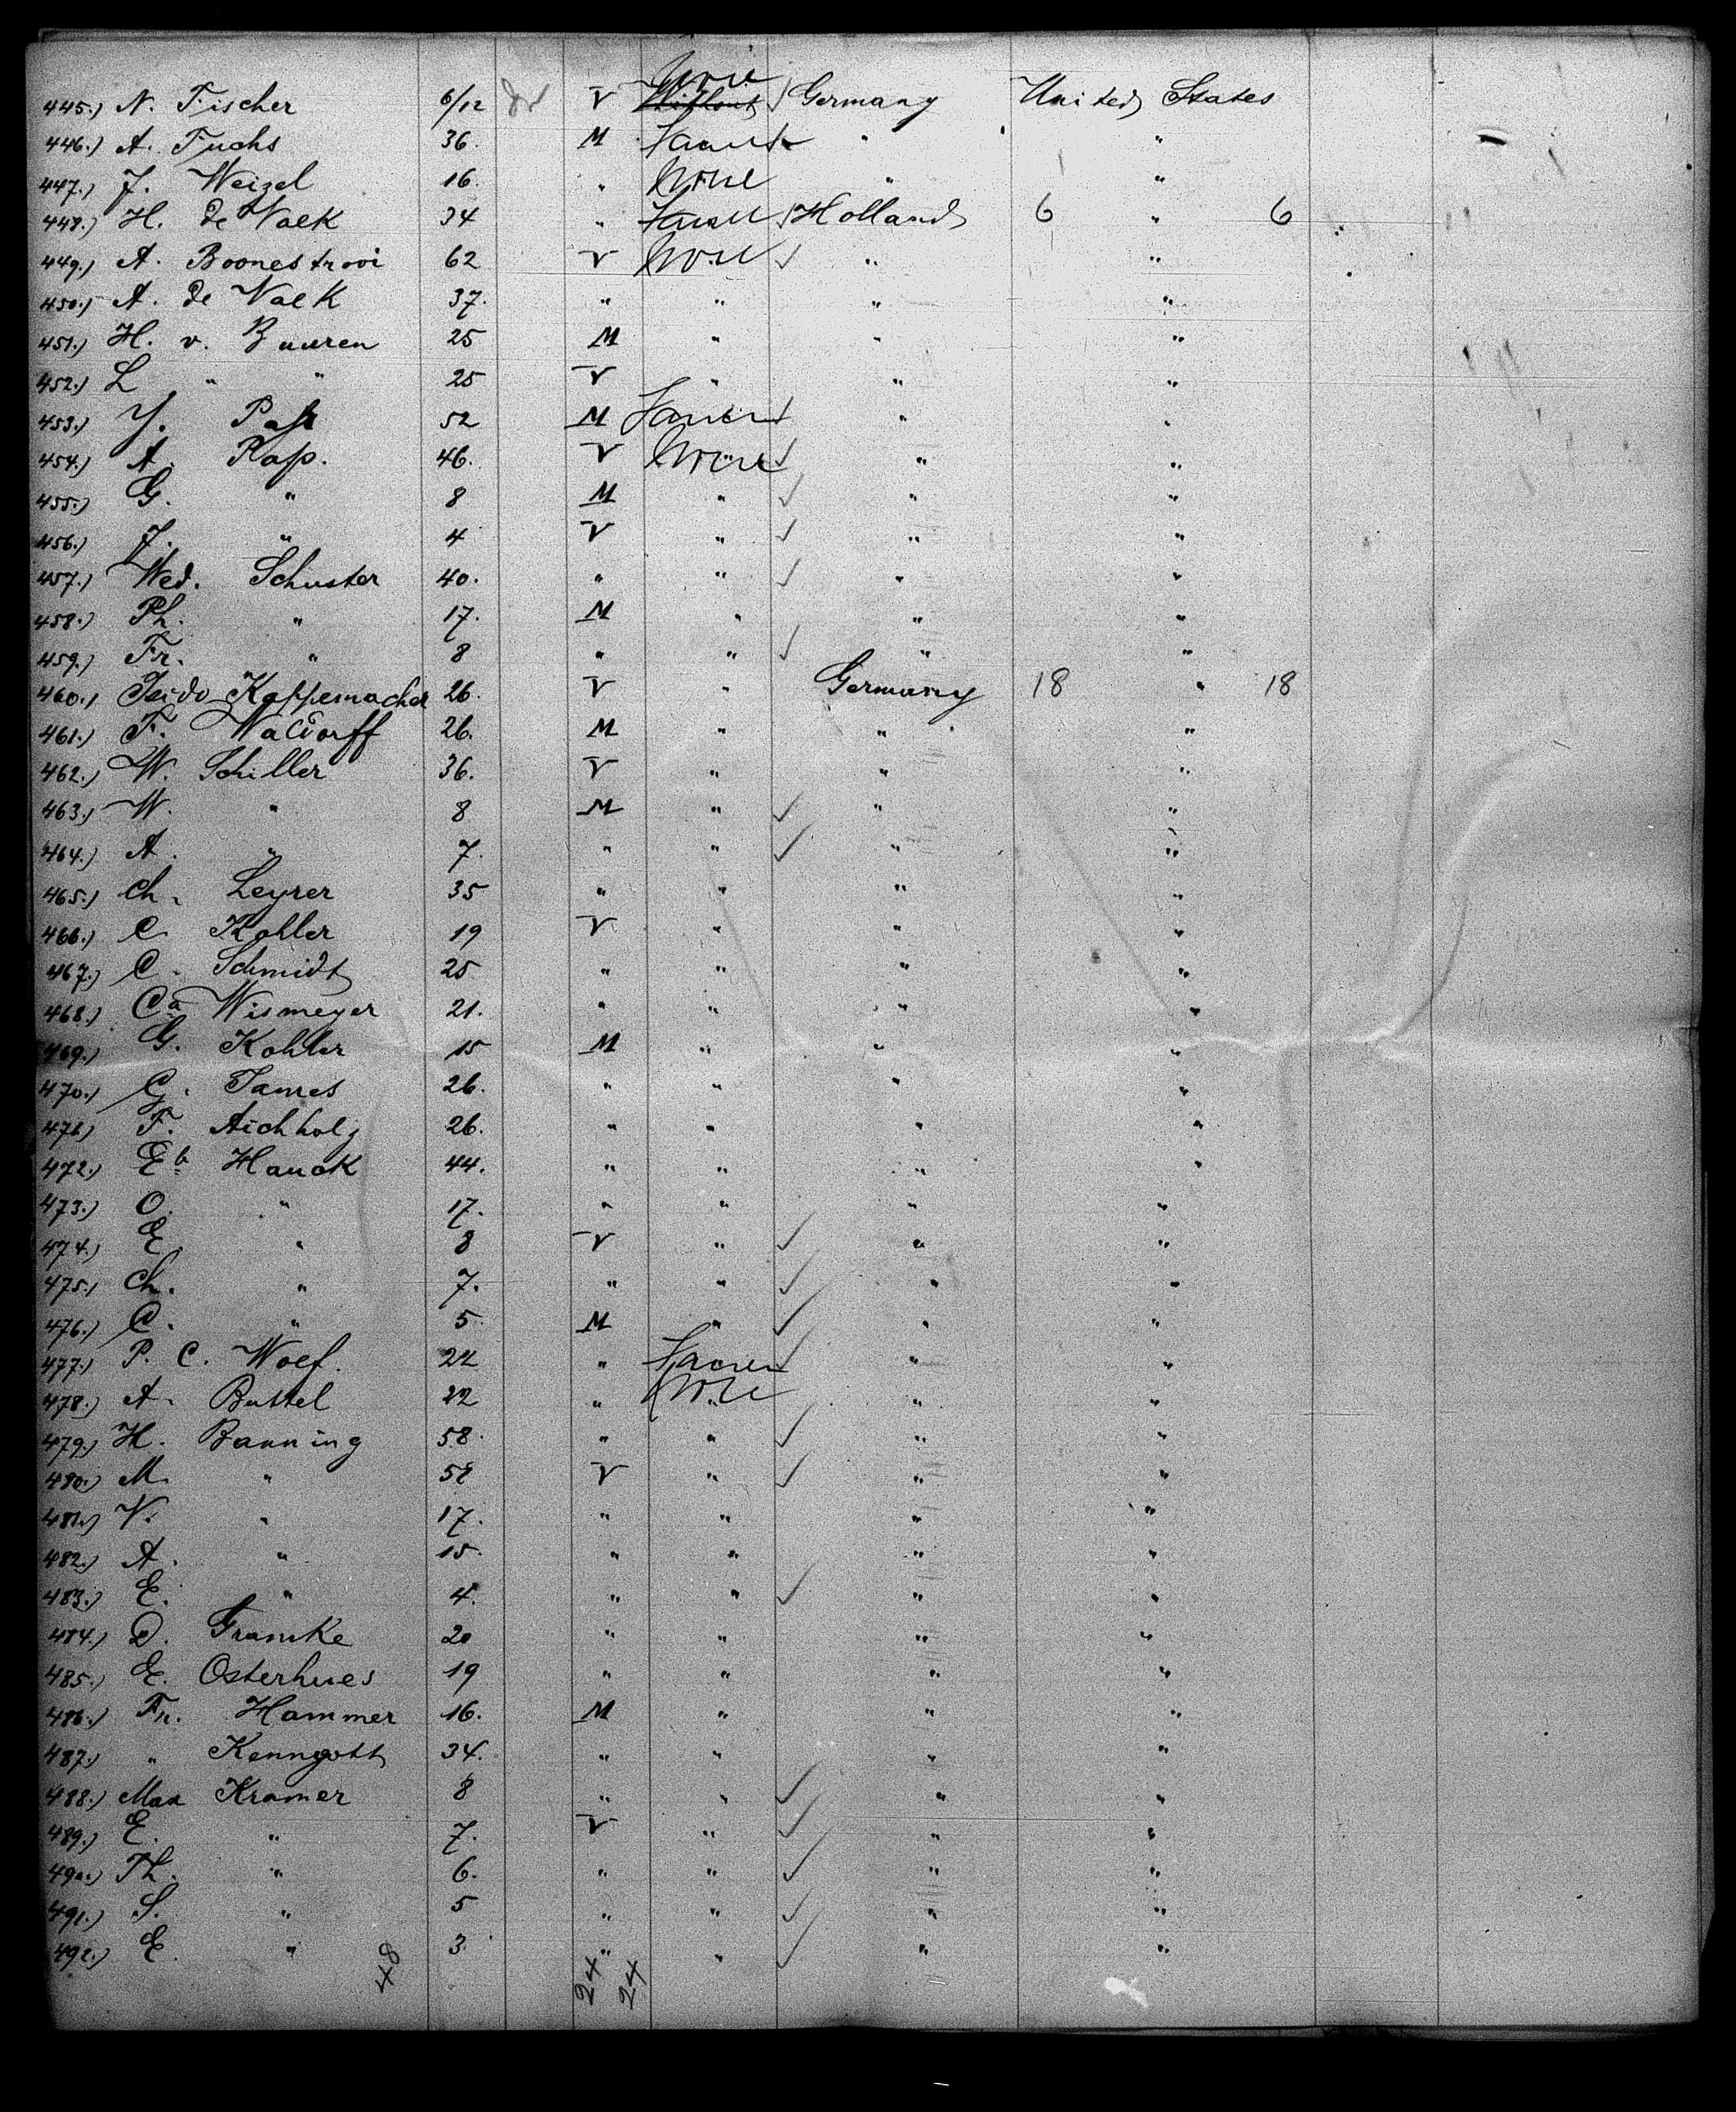 None
445.) N. Fischer 6/12 V Without Germany United States
446.) A. Fuchs 36. M Farmer " "
447.) J. Weizel 16. " None " "
448.) H. de Valk 34 " Farmer Holland 6 " 6
449.) A. Boonestrooi 62 V None " "
450.) A. de Valk 37. " " " "
451.) H. v. Buuren 25 M " " "
452.) L " " 25 V " " "
453.) J. Pap 52 M Farmer " "
454.) A. Pap. 46. V None " "
455.) G. " 8 M " " "
456.) J. " 4 V " " "
457.) Wed. Schuster 40. " " " "
458.) Ph. " 17. M " " "
459.) Fr. " 8 " " " "
460.) Kappemacher 26. V " Germany 18 " 18
461.) F. Waldorff 26. M " " "
462.) W. Schiller 36. V " " "
463.) W. " 8 M " " "
464.) A. " 7. " " " "
465.) Ch. Leyrer 35 " " " "
466.) C. Kohler 19 V " " "
467.) C. Schmidt 25 " " " "
468.) Ca Wismeyer 21. " " " "
469.) G. Kohler 15 M " " "
470.) G. James 26. " " " "
471.) F. Aichholz 26. " " " "
472.) Eb Hauck 44. " " " "
473.) O. " 17. " " " "
474.) E. " 8 V " " "
475.) Ch. " 7. " " " "
476.) C. " 5 M " " "
477.) P. C. Woef. 22 " Farmer " "
478.) A. Buttel 22 " None " "
479.) H. Banning 58. " " " "
480.) M. " 52 V " " "
481.) V. " 17. " " " "
482.) A. " 15. " " " "
483.) E. " 4. " " " "
484.) D. Gramke 20 " " " "
485.) E. Osterhues 19 " " " "
486.) Fr. Hammer 16. M " " "
487.) " Kenngott 34. " " " "
488.) Max Kramer 8 " " " "
489.) E. " 7. V " " "
490.) Th. " 6. " " " "
491.) S. " 5 " " " "
492.) E. " 3. " " " "
48 24 24